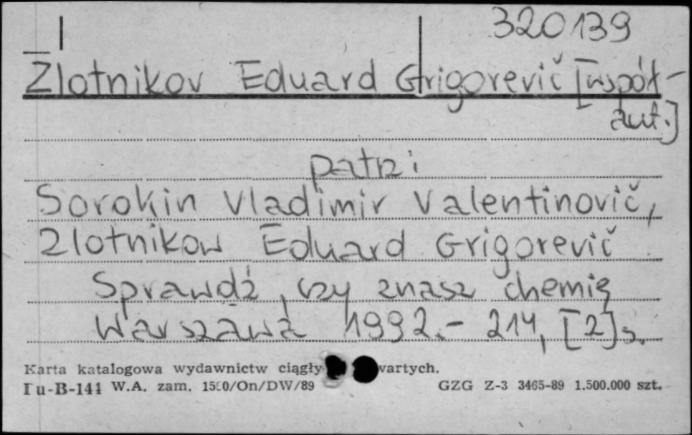 320139
Zlotnikov Eduard Grigorevič [współ-
aut.]
patrz:
Sorokin Vladimir Valentinovič,
Zlotnikow Eduard Grigorevič
Sprawdź, czy znasz chemię
Warszawa 1992.- 214, [2]s.
Karta katalogowa wydawnictw ciągły wartych.
Pu-B-141 W.A. zam. /On/DW/89 GZG Z-3 3465-89 1.500.000 szt.